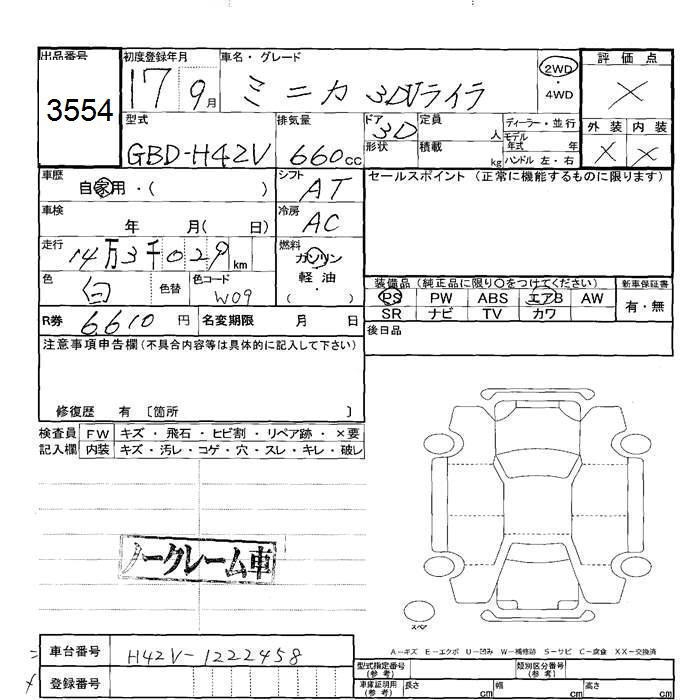 出品番号
3554
初度登録年月
17 9月
車名・グレード
ミニカ 3DVライラ
2WD
・4WD
評価点
×
外装 内装
× ×
型式
GBD-H42V
排気量
660cc
ドア 3D
形状
定員 人
積載 kg
ディーラー・並行
モデル年式 年
ハンドル 左・右
車歴
自家用・( )
シフト
AT
セールスポイント (正常に機能するものに限ります)
車検
年 月( 日)
冷房
AC
走行
14万3千029km
燃料
ガソリン
・
軽油
( )
色
白
色替
色コード
W09
装備品 (純正品に限り○をつけてください)
新車保証書
PS PW ABS エアB AW
有・無
SR ナビ TV カワ
R券 6,610 円
名変期限 月 日
後日品
注意事項申告欄(不具合内容等は具体的に記入して下さい)
修復歴 有 〔箇所 〕
検査員 FW キズ・飛石・ヒビ割・リペア跡・×要
記入欄 内装 キズ・汚レ・コゲ・穴・スレ・キレ・破レ
ノークレーム車
スペア
A－キズ E－エクボ U－凹み W－補修跡 S－サビ C－腐食 XX－交換済
車台番号 H42V-1222458
登録番号
型式指定番号(参考)
類別区分番号(参考)
車庫証明用(参考) 長さ cm 幅 cm 高さ cm